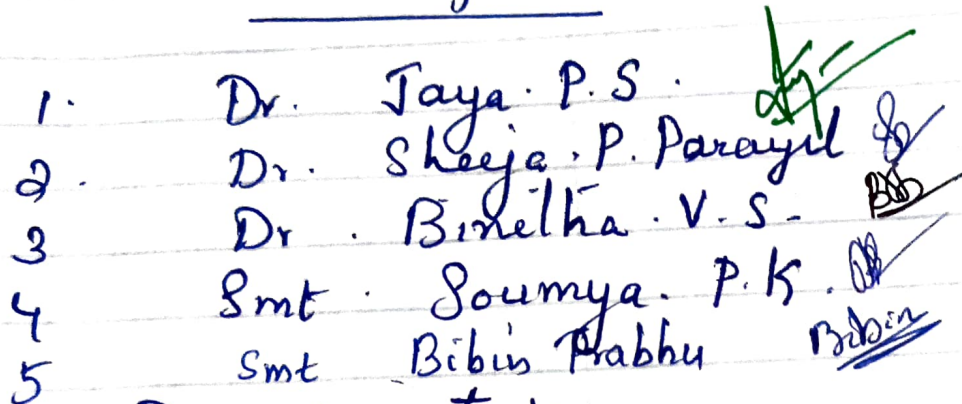 1. Dr. Jaya. P.S.
2. Dr. Sheeja. P. Parayil
3 Dr. Binetha. V.S-
4 Smt. Soumya. P.K.
5 Smt Bibin Prabhu Bibin